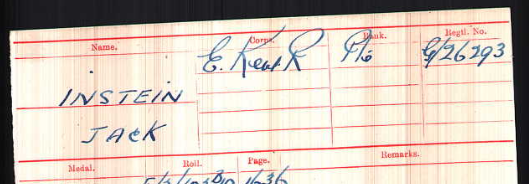 Name. Corps. Rank. Regtl. No.
E. Kent R Pte G/26293
INSTEIN
JACK
Medal. Roll. Page. Remarks.